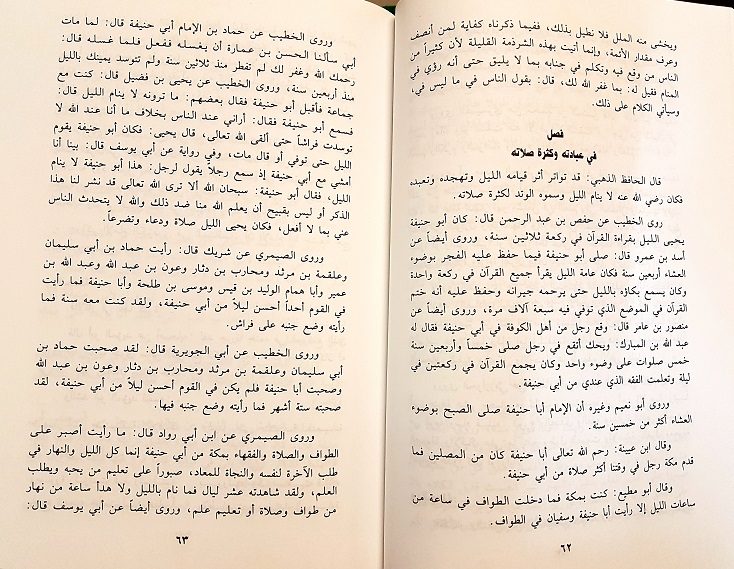 ويخشى منه الملل فلا نطيل بذلك، ففيما ذكرناه كفاية لمن أنصف
وعرف مقدار الأئمة، وإنما أتيت بهذه الشرذمة القليلة لأن كثيراً من
الناس من وقع فيه وتكلم في جنابه بما لا يليق حتى أنه رؤي في
المنام فقيل له: بما غفر الله لك، قال: بقول الناس في ما ليس في،
وسيأتي الكلام على ذلك.
فصل
في عبادته وكثرة صلاته
قال الحافظ الذهبي: قد تواتر أثر قيامه الليل وتهجده وتعبده
فكان رضي الله عنه لا ينام الليل وسموه الوتد لكثرة صلاته.
روى الخطيب عن حفص بن عبد الرحمن قال: كان أبو حنيفة
يحيى الليل بقراءة القرآن في ركعة ثلاثين سنة، وروى أيضاً عن
أسد بن عمرو قال: صلى أبو حنيفة فيما حفظ عليه الفجر بوضوء
العشاء أربعين سنة فكان عامة الليل يقرأ جميع القرآن في ركعة واحدة
وكان يسمع بكاؤه بالليل حتى يرحمه جيرانه وحفظ عليه أنه ختم
القرآن في الموضع الذي توفي فيه سبعة آلاف مرة، وروى أيضاً عن
منصور بن عامر قال: وقع رجل من أهل الكوفة في أبي حنيفة فقال له
عبد الله بن المبارك: ويحك أتقع في رجل صلى خمساً وأربعين سنة
خمس صلوات على وضوء واحد وكان يجمع القرآن في ركعتين في
ليلة وتعلمت الفقه الذي عندي من أبي حنيفة.
وروى أبو نعيم وغيره أن الإمام أبا حنيفة صلى الصبح بوضوء
العشاء أكثر من خمسين سنة.
وقال ابن عيينة: رحم الله تعالى أبا حنيفة كان من المصلين فما
قدم مكة رجل في وقتنا أكثر صلاة من أبي حنيفة.
وقال أبو مطيع: كنت بمكة فما دخلت الطواف في ساعة من
ساعات الليل إلا رأيت أبا حنيفة وسفيان في الطواف.
٦٢
وروى الخطيب عن حماد بن الإمام أبي حنيفة قال: لما مات
أبي سألنا الحسن بن عمارة أن يغسله ففعل فلما غسله قال:
رحمك الله وغفر لك لم تفطر منذ ثلاثين سنة ولم تتوسد يمينك بالليل
منذ أربعين سنة، وروى الخطيب عن يحيى بن فضيل قال: كنت مع
جماعة فأقبل أبو حنيفة فقال بعضهم: ما ترونه لا ينام الليل قال:
فسمع أبو حنيفة فقال: أراني عند الناس بخلاف ما أنا عند الله لا
توسدت فراشاً حتى ألقى الله تعالى، قال يحيى: فكان أبو حنيفة يقوم
الليل حتى توفي أو قال مات، وفي رواية عن أبي يوسف قال: بينا أنا
أمشي مع أبي حنيفة إذ سمع رجلاً يقول لرجل: هذا أبو حنيفة لا ينام
الليل، فقال أبو حنيفة: سبحان الله ألا ترى الله تعالى قد نشر لنا هذا
الذكر أو ليس بقبيح أن يعلم الله منا ضد ذلك والله لا يتحدث الناس
عني بما لا أفعل، فكان يحيى الليل صلاة ودعاء وتضرعاً.
وروى الصيمري عن شريك قال: رأيت حماد بن أبي سليمان
وعلقمة بن مرثد ومحارب بن دثار وعون بن عبد الله وعبد الله بن
عمير وأبا همام الوليد بن قيس وموسى بن طلحة وأبا حنيفة فما رأيت
في القوم أحداً أحسن ليلاً من أبي حنيفة، ولقد كنت معه سنة فما
رأيته وضع جنبه على فراش.
وروى الخطيب عن أبي الجويرية قال: لقد صحبت حماد بن
أبي سليمان وعلقمة بن مرثد ومحارب بن دثار وعون بن عبد الله
وصحبت أبا حنيفة فلم يكن في القوم أحسن ليلاً من أبي حنيفة، لقد
صحبته ستة أشهر فما رأيته وضع جنبه فيها.
وروى الصيمري عن ابن أبي رواد قال: ما رأيت أصبر على
الطواف والصلاة والفقهاء بمكة من أبي حنيفة إنما كل الليل والنهار في
طلب الآخرة لنفسه والنجاة للمعاد، صبوراً على تعليم من يحبه ويطلب
العلم، ولقد شاهدته عشر ليال فما نام بالليل ولا هدأ ساعة من نهار
من طواف وصلاة أو تعليم علم، وروى أيضاً عن أبي يوسف قال:
٦٣